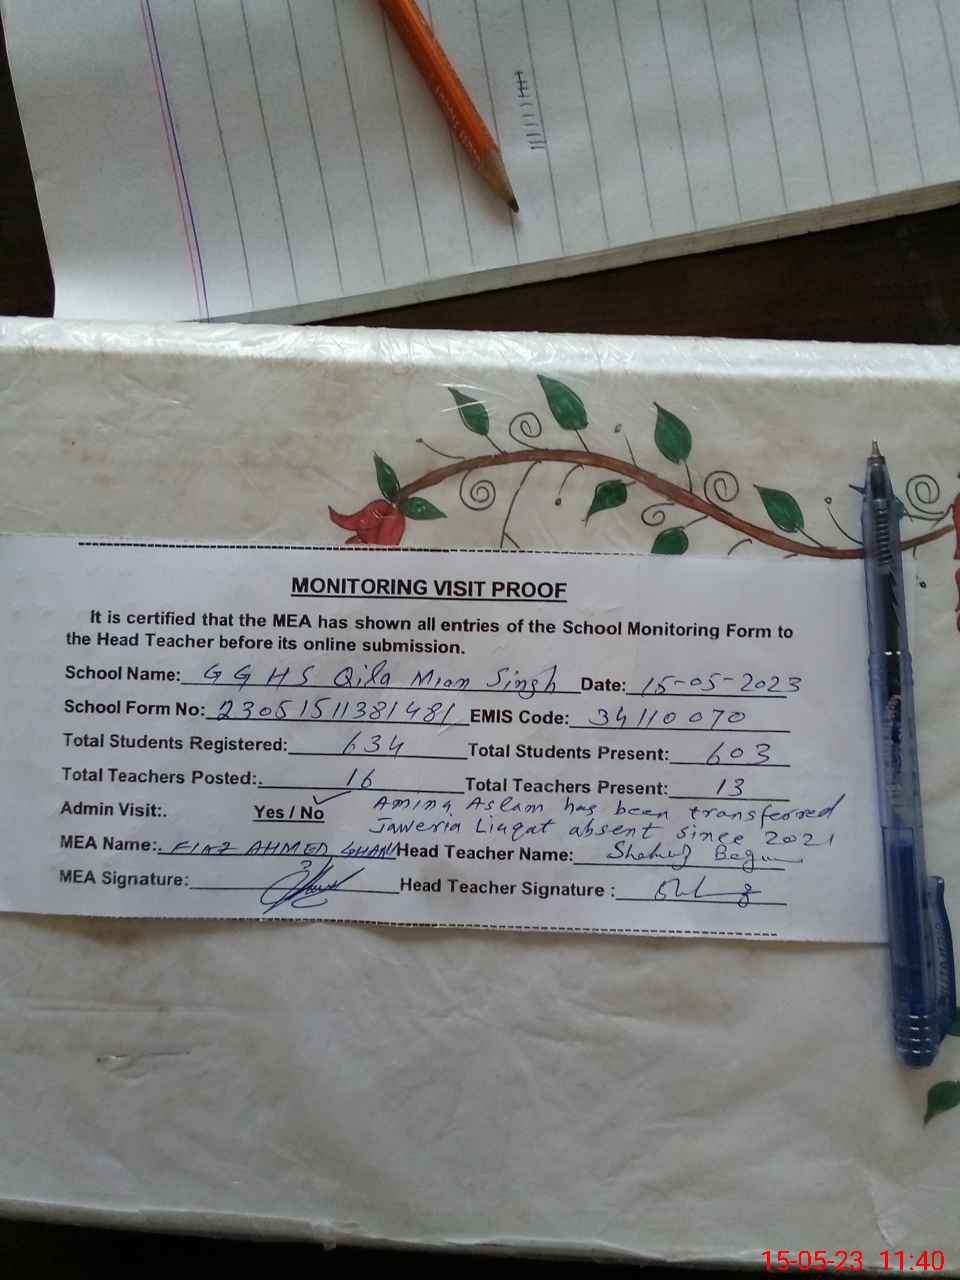 MONITORING VISIT PROOF
It is certified that the MEA has shown all entries of the School Monitoring Form to
the Head Teacher before its online submission.
School Name: GGHS Qila Mian Singh Date: 15-05-2023
School Form No: 23051511381481 EMIS Code: 34110070
Total Students Registered: 634 Total Students Present: 603
Total Teachers Posted:. 16 Total Teachers Present: 13
Admin Visit:. Yes / No Amina Aslam has been transferred
Jaweria Liaqat absent since 2021
MEA Name:. FIAZ AHMED GHANI Head Teacher Name: Begum
MEA Signature: Head Teacher Signature :
15-05-23 11:40